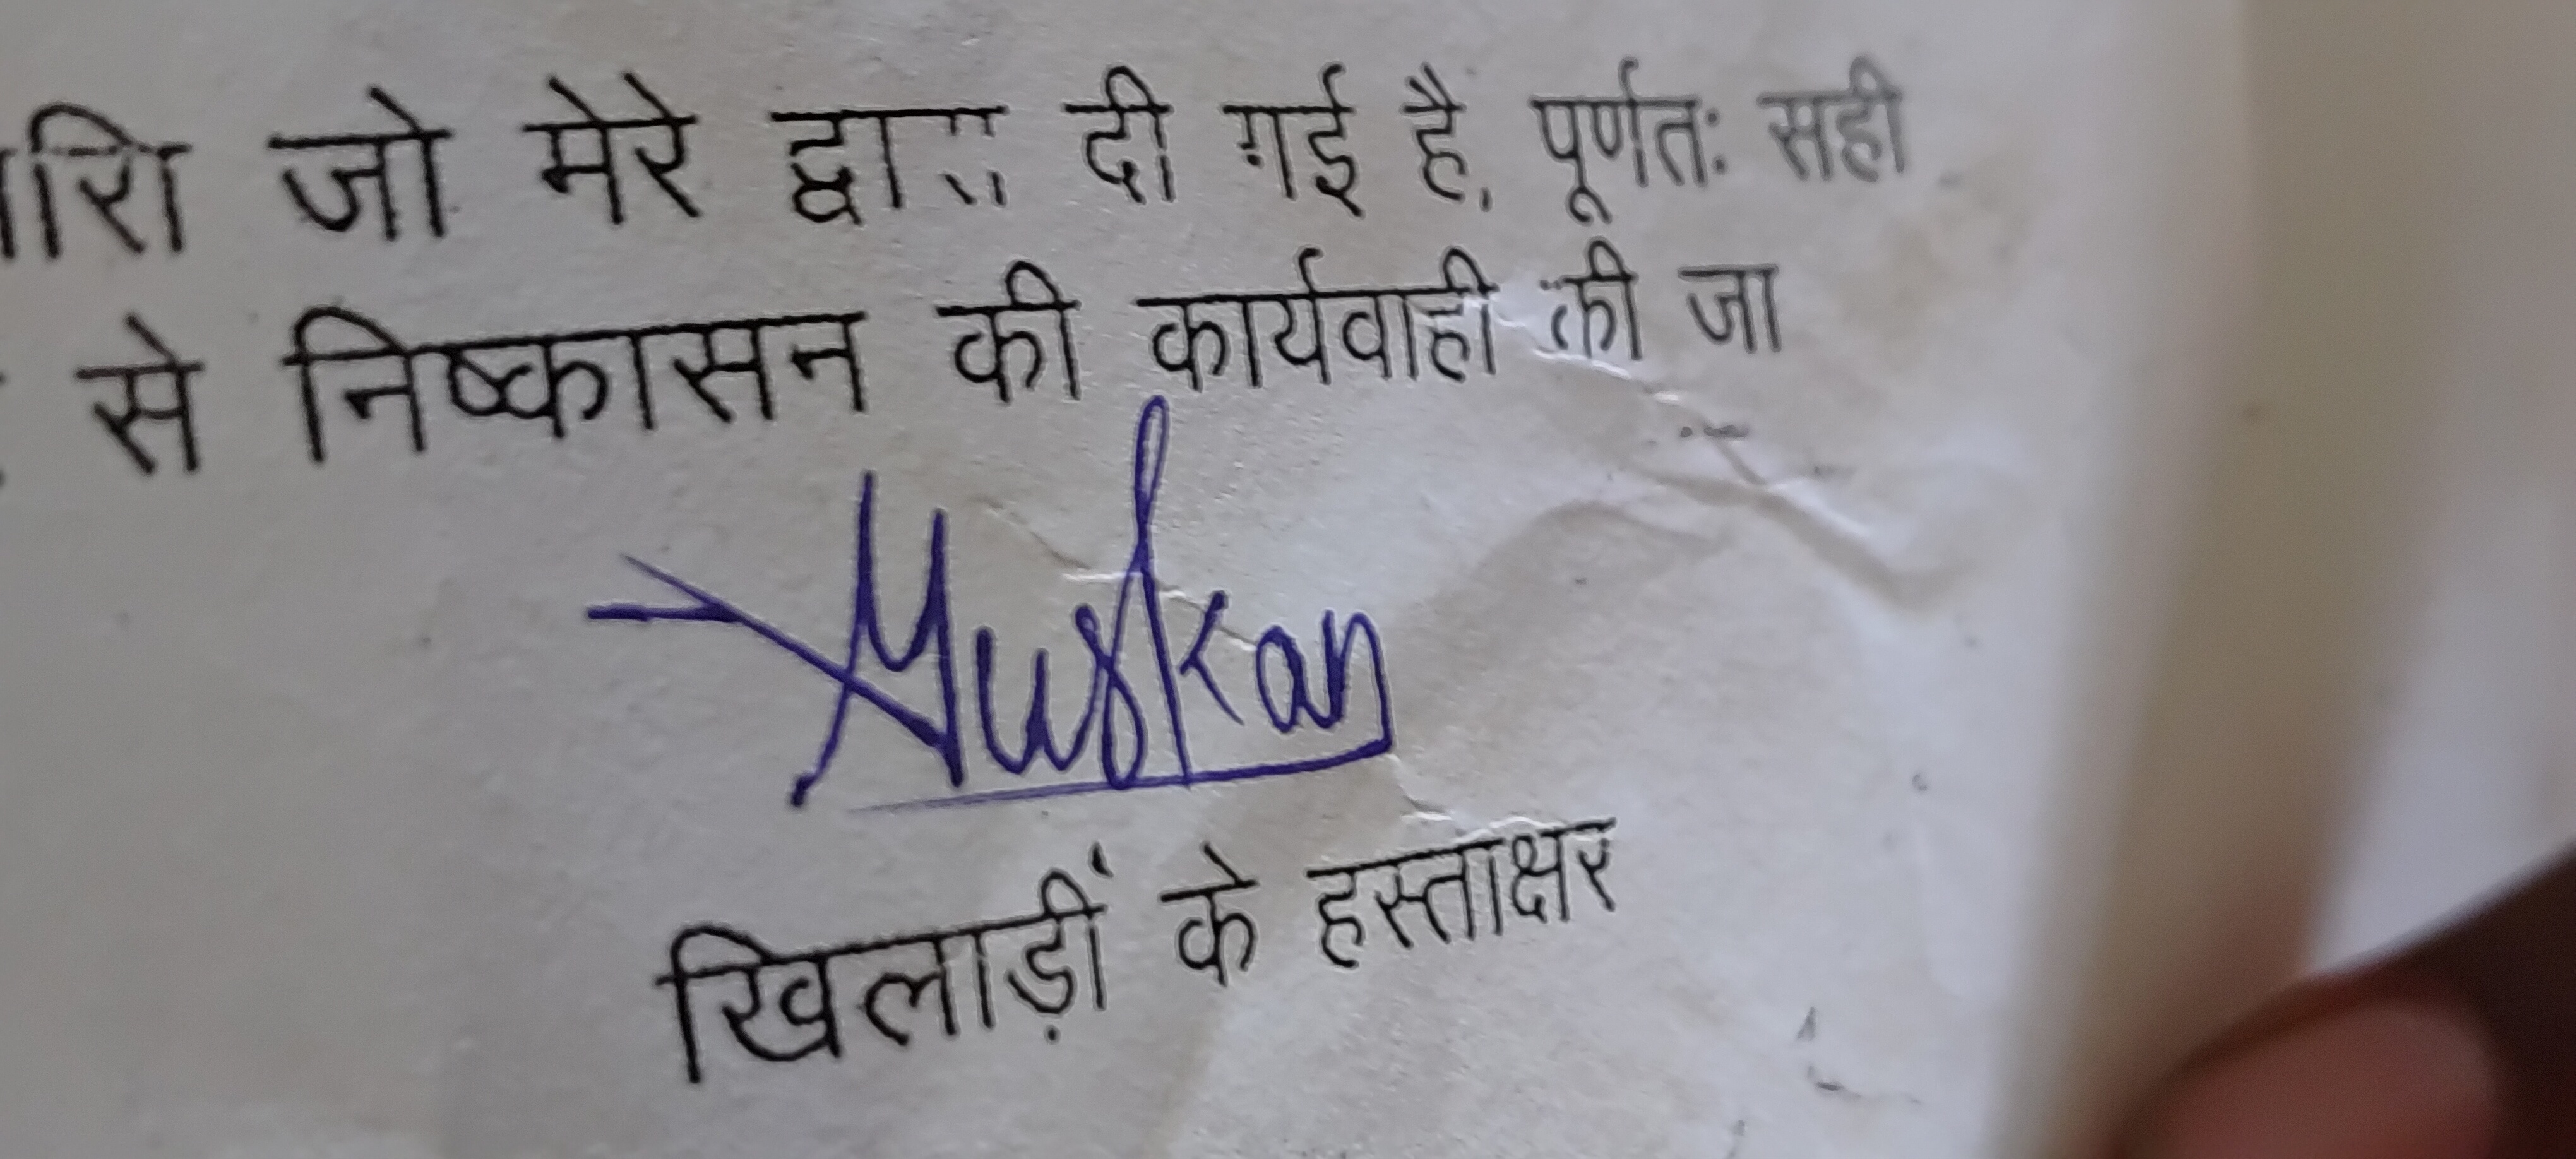 जो मेरे द्वारा दी गई है, पूर्णतः सही
से निष्कासन की कार्यवाही की जा
Muskan
खिलाड़ीं के हस्ताक्षर